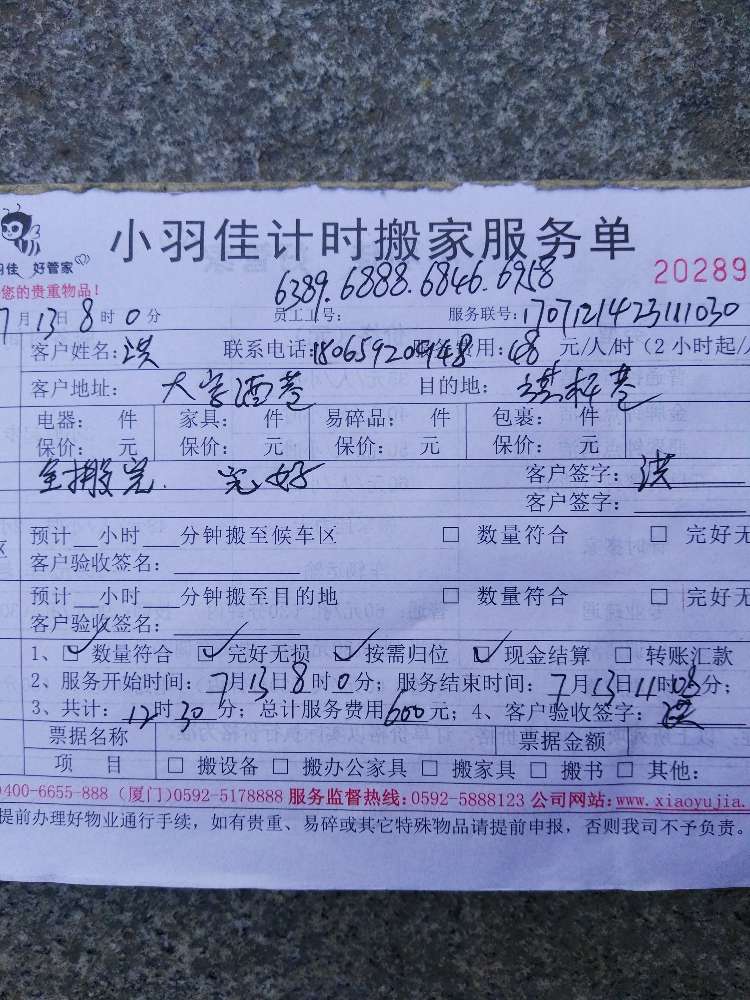 小羽佳计时搬家服务单
羽佳 好管家
您的贵重物品!
6389.6888.6846.6958
20289
7月13日8时0分 员工工号: 服务联号:170712142311030
客户姓名:洪 联系电话:18065920448 费用:48元/人/时(2小时起/
客户地址: 大字酒巷 目的地:
电器: 件 家具: 件 易碎品: 件 包裹: 件
保价: 元 保价: 元 保价: 元 保价: 元
全搬完. 完好 客户签字:洪
客户签字:
区 预计 小时 分钟搬至候车区 □ 数量符合 □ 完好无
客户验收签名:
预计 小时 分钟搬至目的地 □ 数量符合 □ 完好无
客户验收签名:
1、☑ 数量符合 ☑ 完好无损 ☑ 按需归位 ☑ 现金结算 □ 转账汇款
2、服务开始时间:7月13日8时0分;服务结束时间:7月13日11时08分;
3、共计:12时30分;总计服务费用600元;4、客户验收签字:洪
票据名称 票据金额
项 目 □ 搬设备 □ 搬办公家具 □ 搬家具 □ 搬书 □ 其他:
0400-6655-888 (厦门)0592-5178888 服务监督热线:0592-5888123 公司网站:www.xiaoyujia.
提前办理好物业通行手续,如有贵重、易碎或其它特殊物品请提前申报,否则我司不予负责。